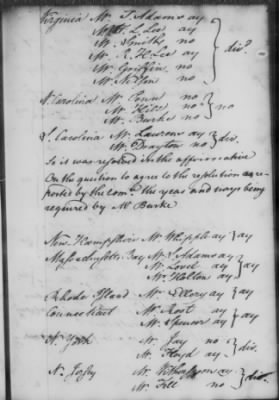 Virginia Mr. T. Adams ay
Mr. F. L. Lee ay
Mr. Smith no
Mr. R. H. Lee ay
Mr. Griffin no
Mr. no
div^d
N. Carolina Mr. Penn no
Mr. Hill no
Mr. Burke no
no
S. Carolina Mr. Laurens ay
Mr. Drayton no
div.
So it was resolved in the affirmative
On the question to agree to the resolution as re=
ported by the com^ee the yeas and nays being
required by M Burke
New Hampshire Mr. Whipple ay } ay
Massachusetts Bay Mr. S. Adams ay
Mr. Lovel ay
Mr. Holton ay
ay
Rhode Island Mr. Ellery ay } ay
Connecticut Mr. Root ay
Mr. Spencer ay
ay
N. York Mr. Jay no
Mr. Floyd ay
div.
N. Jersey Mr. Witherspoon ay
Mr. Fell no
div.